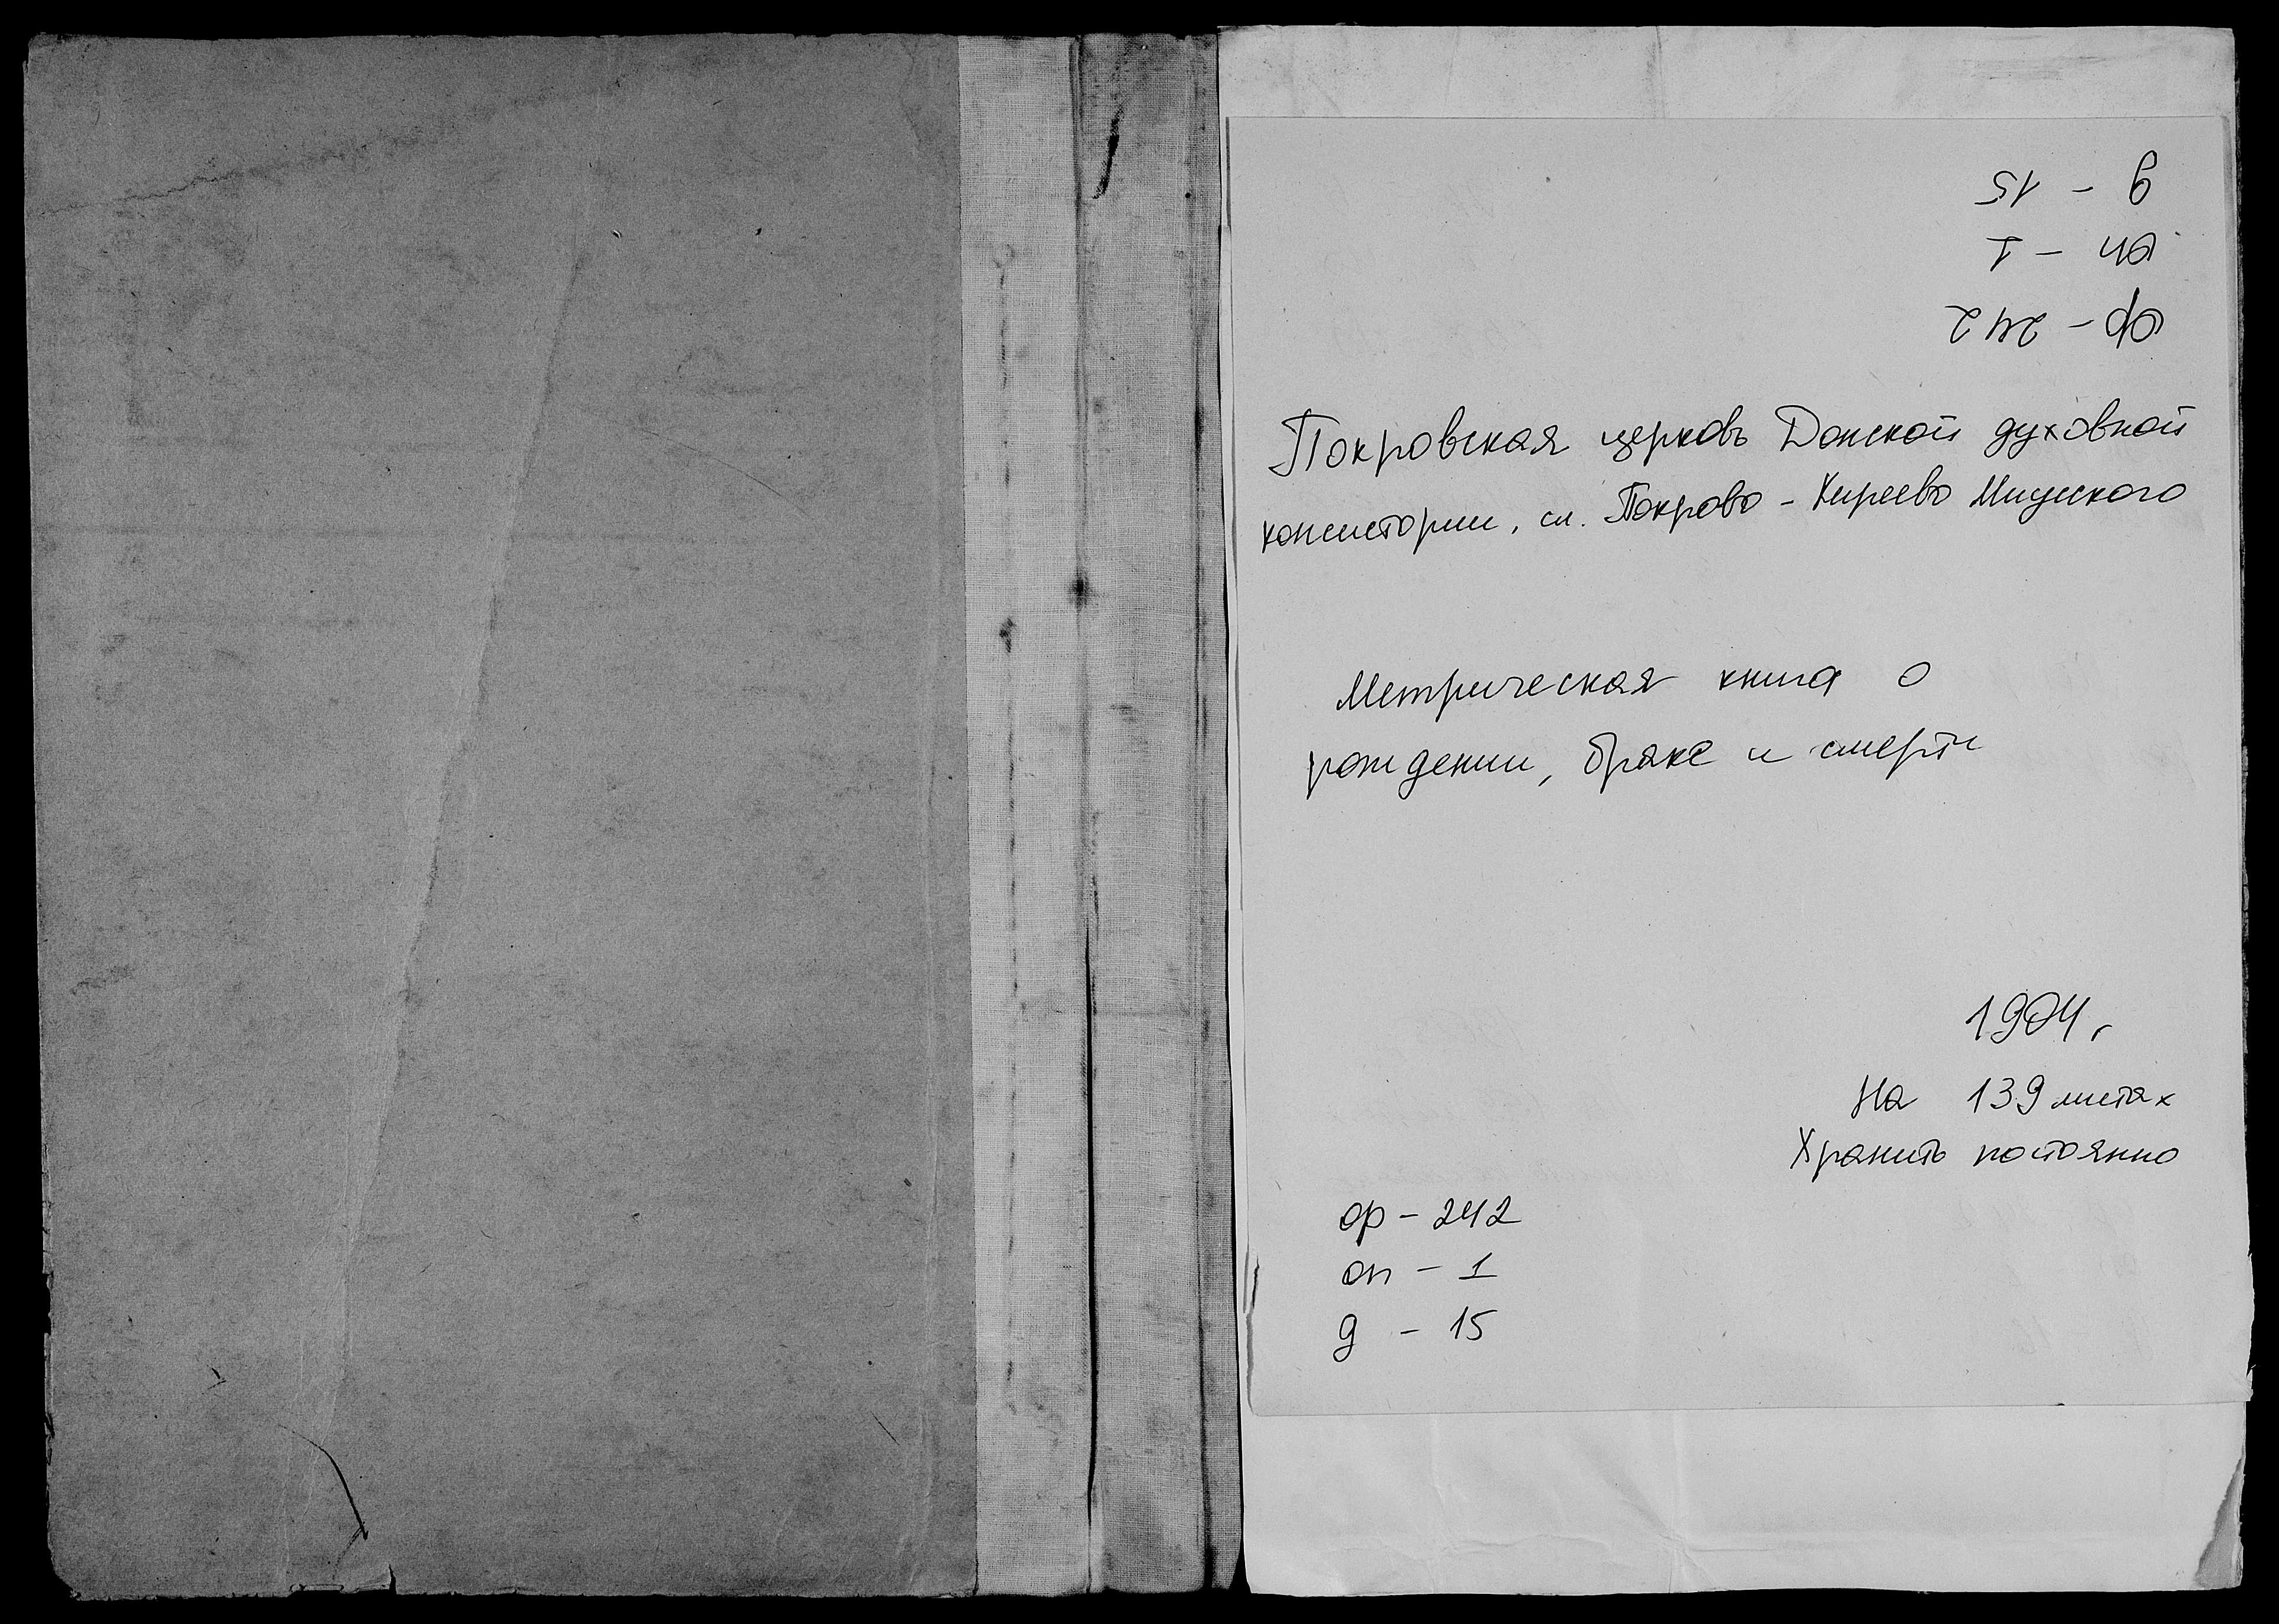 д - 15
оп - 1
ф - 242
Покровская церковь Донской духовной
консистории, сл. Покрово - Киреево Миусского
Метрическая книга о
рождении, браке и смерти
1904 г
На 139 листах
Хранить постоянно
ф - 242
оп - 1
д - 15